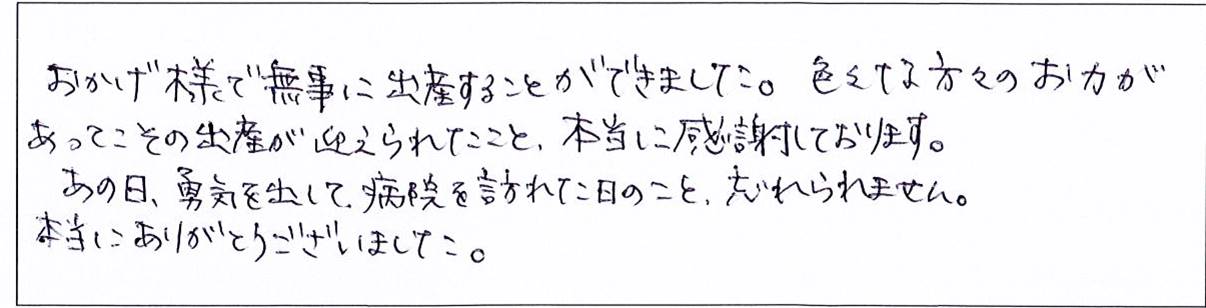 おかげ様で無事に出産することができました。色々な方々のお力が
あってこその出産が迎えられたこと、本当に感謝しております。
あの日、勇気を出して、病院を訪れた日のこと、忘れられません。
本当にありがとうございました。